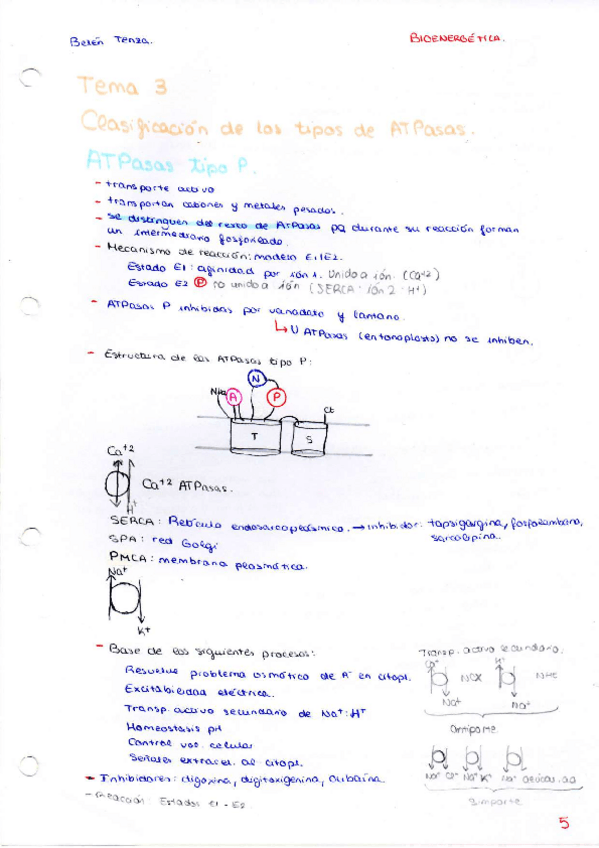 Belén Tenza.
BIOENERGÉTICA.
Tema 3
Clasificación de los tipos de ATPasas.
ATPasas tipo P.
- transporte activo
- transportan cationes y metales pesados.
- se distinguen del resto de ATPasas pq durante su reacción forman
un intermediario fosforilado.
- Mecanismo de reacción: modelo E1/E2.
Estado E1: afinidad por ión 1. Unido a ión. (Ca+2)
Estado E2 P no unido a ión (SERCA: ión 2: H+)
- ATPasas P inhibidas por vanadato y lantano.
↳ V ATPasas (en tonoplasto) no se inhiben.
- Estructura de las ATPasas tipo P:
N
NH2 A P
Ct
T S
Ca+2
Ca+2 ATPasas.
H+
SERCA: Retículo endosarcoplásmico. → inhibidor: tapsigargina, fosfolambano,
sarcolipina.
SPA: red Golgi
PMCA: membrana plasmática.
Na+
K+
- Base de los siguientes procesos:
Resuelve problema osmótico de A- en citopl.
Excitabilidad eléctrica.
Transp. activo secundario de Na+: H+
Homeostasis pH
Control vol. celular
Señales extracel. al citopl.
Transp. activo secundario.
H+
NCX NHE
Na+ Na+
Antiporte
Na+ Cl- Na+ K+ Na+
Simporte
- Inhibidores: digoxina, digitoxigenina, oubaína.
- Reacción: Estados E1 - E2.
5